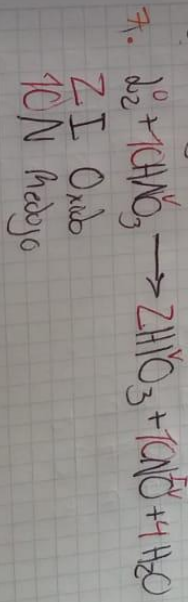 7. I₂⁰ + 10HNO₃ ⟶ 2HIO₃ + 10NO + 4H₂O
2 I Oxido
10 N Redujo